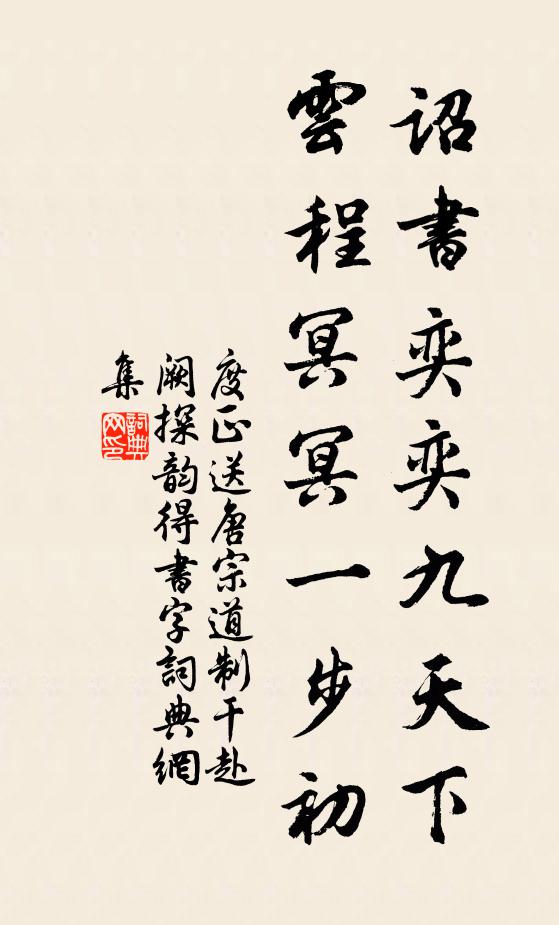 詔書奕奕九天下
雲程冥冥一步初
度正送唐宗道制干赴
闕探韵得書字詞典網
集
詞典
网印